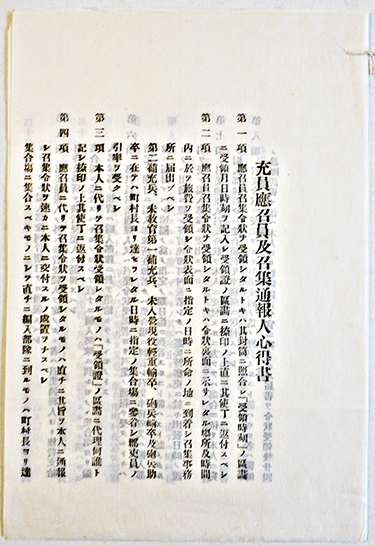 充員應召員及召集通報人心得書
第一項 應召員召集令狀ヲ受領シタルトキハ其封筒ニ照合ヒ「受領時刻」ノ區畫
ニ受領月日時刻ヲ記入シ受領證ノ區畫ニ捺印ノ上直ニ其使丁ニ返付スベシ
第二項 應召員召集令狀ヲ受領シタルトキハ令狀裏面ニ示サレタル場所及時間
内ニ於テ旅費ヲ受領シ令狀表面ニ指定ノ日時ニ所命ノ地ニ到着シ召集事務
所ニ届出ヅベシ
第二補充兵、未敎育第一補充兵、未入營現役輕重輸卒、砲兵輸卒及砲兵助
卒ニ在テハ町村長ヨリ達セラレタル日時ニ指定ノ集合場ニ參着シ郡吏員ノ
引率ヲ受クベシ
第三項 本人ニ代リテ召集令狀受領シタルモノハ「受領證」ノ區畫ニ代理何誰ト
記シ捺印ノ上其使丁ニ返付スベシ
第四項 應召員ニ代リテ召集令狀ヲ受領シタルモノハ直チニ其旨ヲ本人ニ通報
シ召集令狀ヲ速カニ本人ニ交付スルノ處置ヲナスベシ
集合場ニ集合スベキモノニシテ直チニ編入部隊ニ到ルモノハ町村長ヨリ達